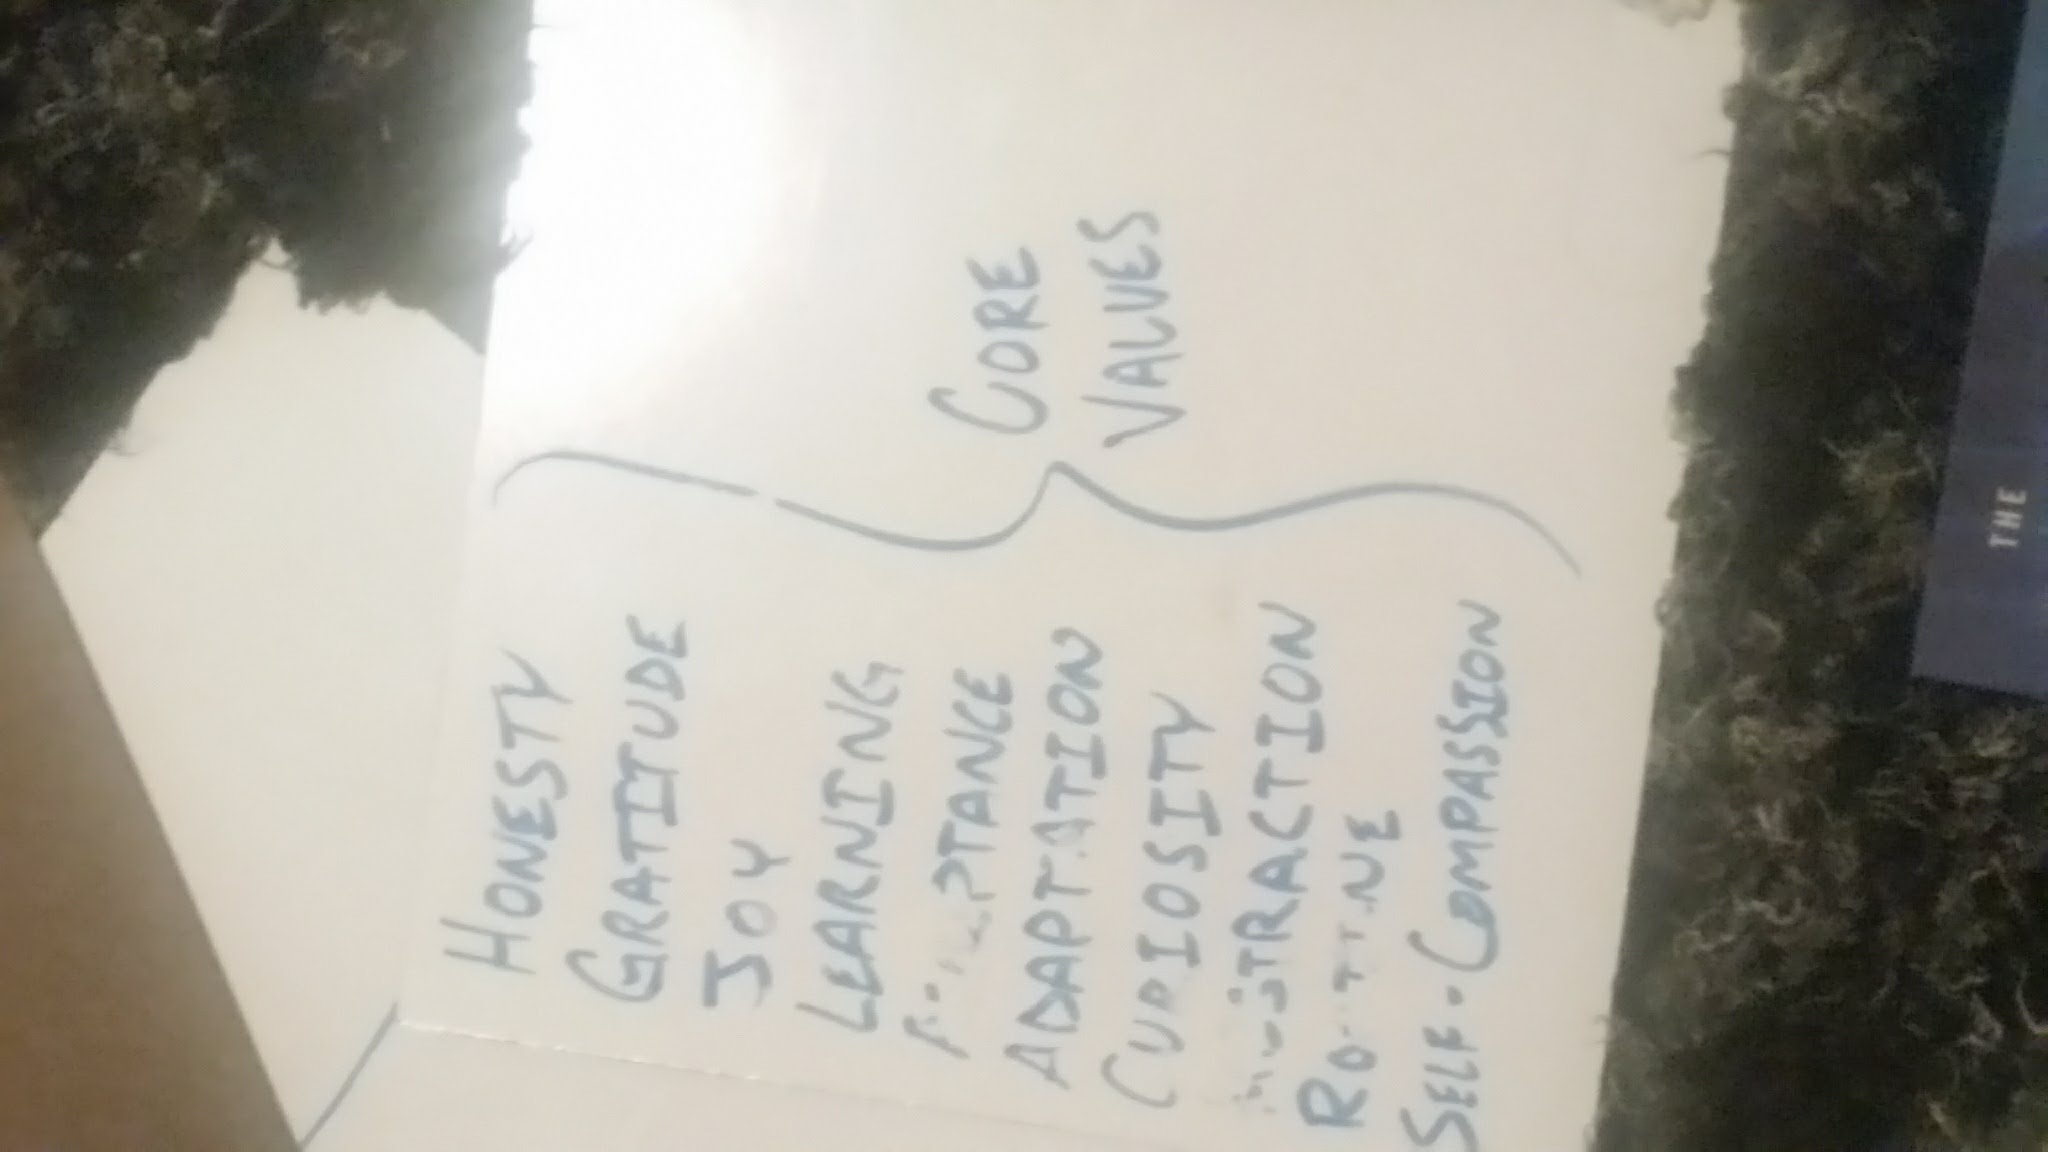 HONESTY
GRATITUDE
JOY
LEARNING
ACCEPTANCE
ADAPTATION
CURIOSITY
ABSTRACTION
ROUTINE
SELF-COMPASSION
CORE
VALUES
THE